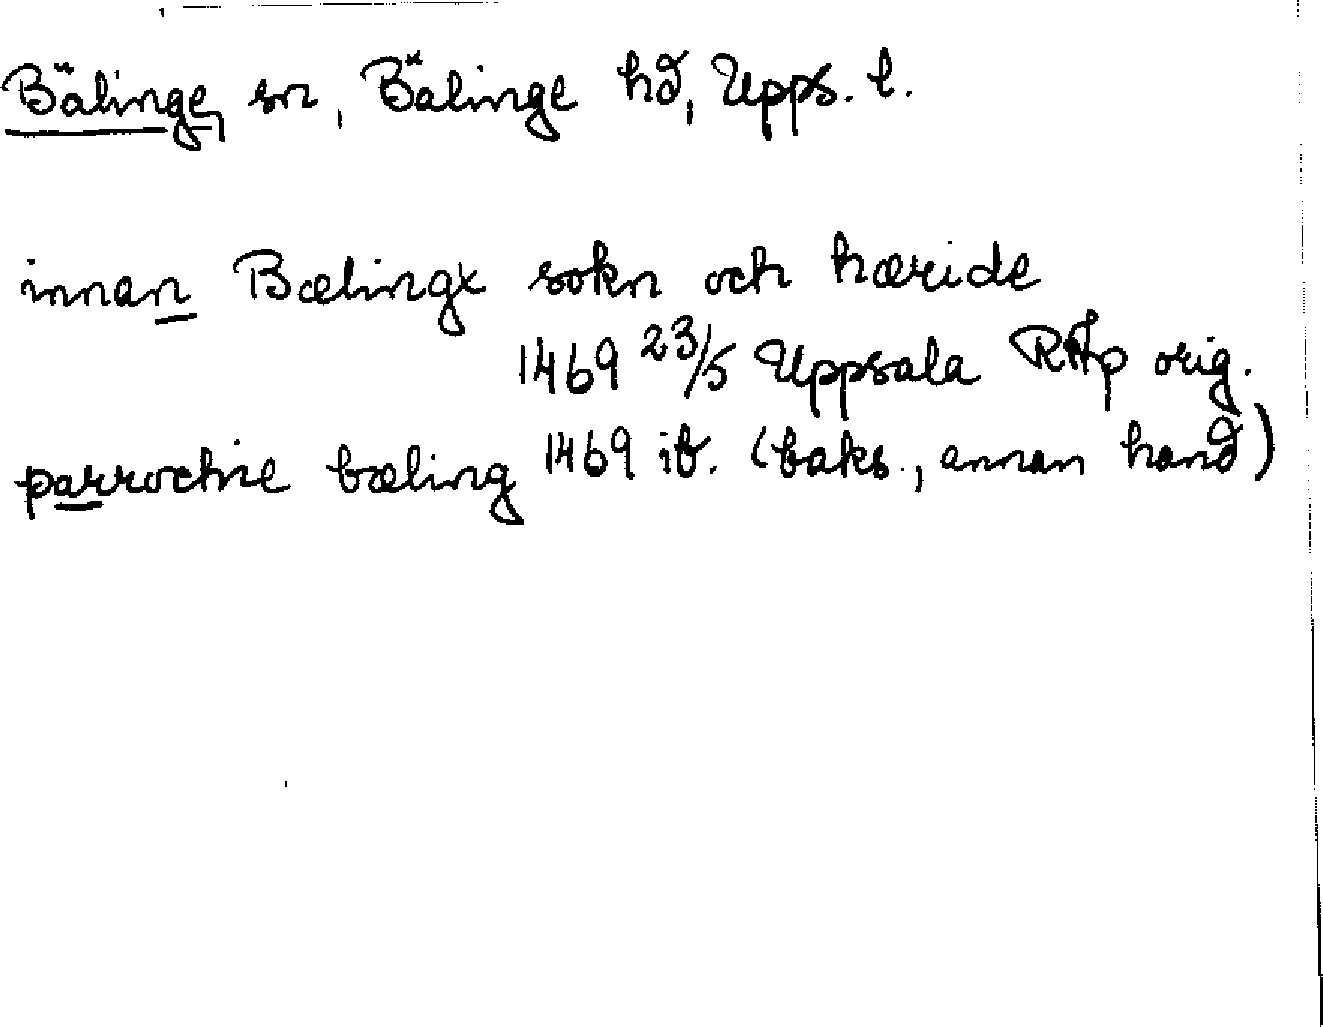 Bälinge, sn, Bälinge hd, Upps. l.
innan Bælingx sokn och hæride
1469 23/5 Uppsala RAp orig.
parrochie bæling 1469 ib. (baks., annan hand)